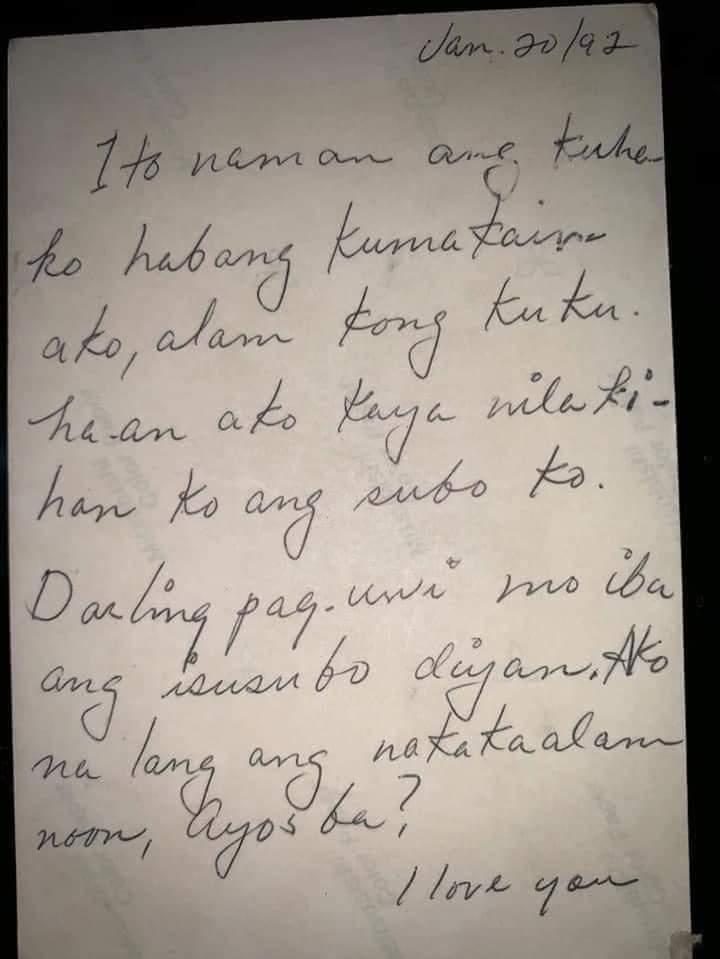 Jan. 20/92
Ito naman ang kuha
ko habang kumakain
ako, alam kong kuku.
ha-an ako kaya nilaki-
han ko ang subo ko.
Darling pag-uwi mo iba
ang isusubo diyan. Ako
na lang ang nakakaalam
noon, Ayos ba?
I love you